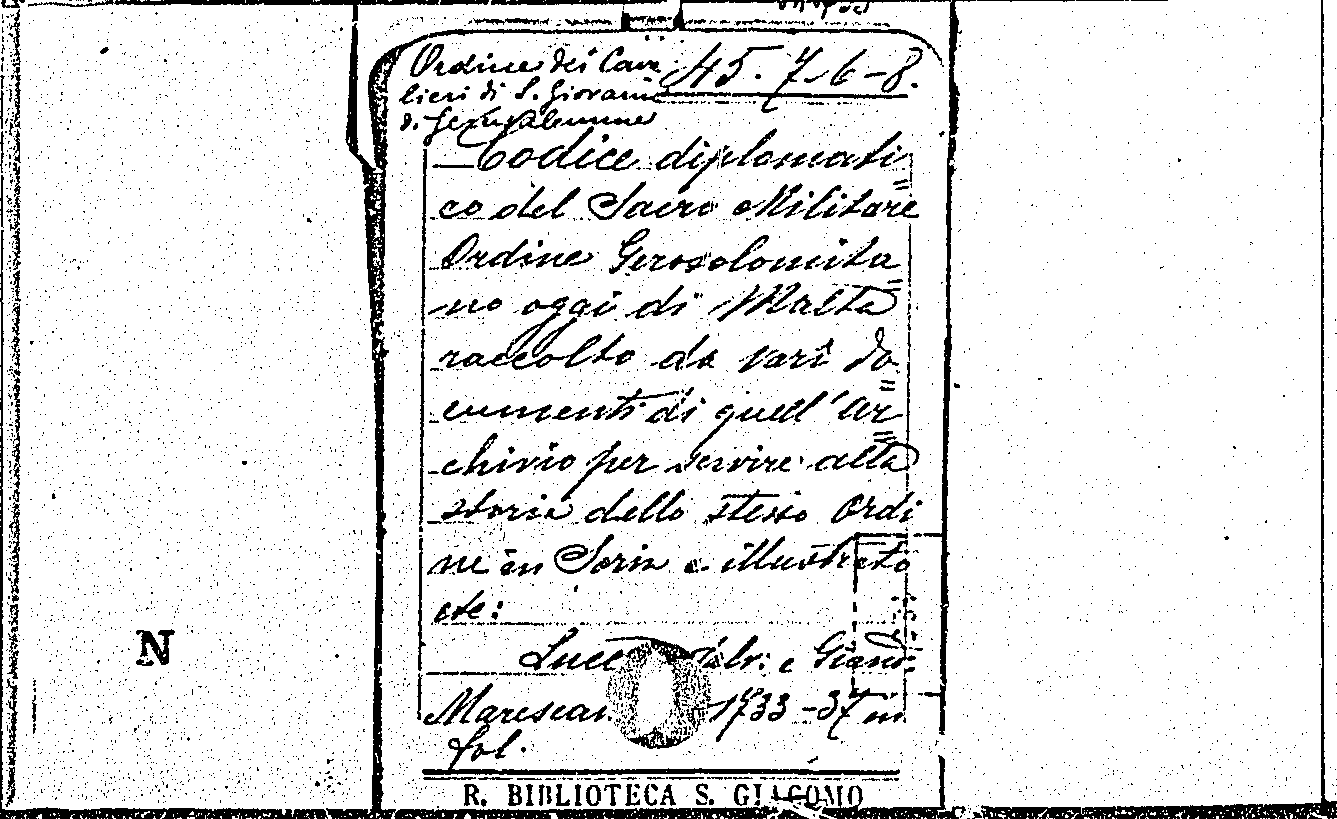 Ordine dei Cava
lieri di S. Giovanni
di Gerusalemme
45. 7-6-8.
Codice diplomati
co del Sacro Militare
Ordine Gerosolomita
no oggi di Malta
raccolto da varî do
cumenti di quell'ar
chivio per servire alla
storia dello stesso Ordi
ne in Soria e illustrato
etc:
Lucca e Giand:
1733-37 in
fol.
N
R. BIBLIOTECA S. GIACOMO